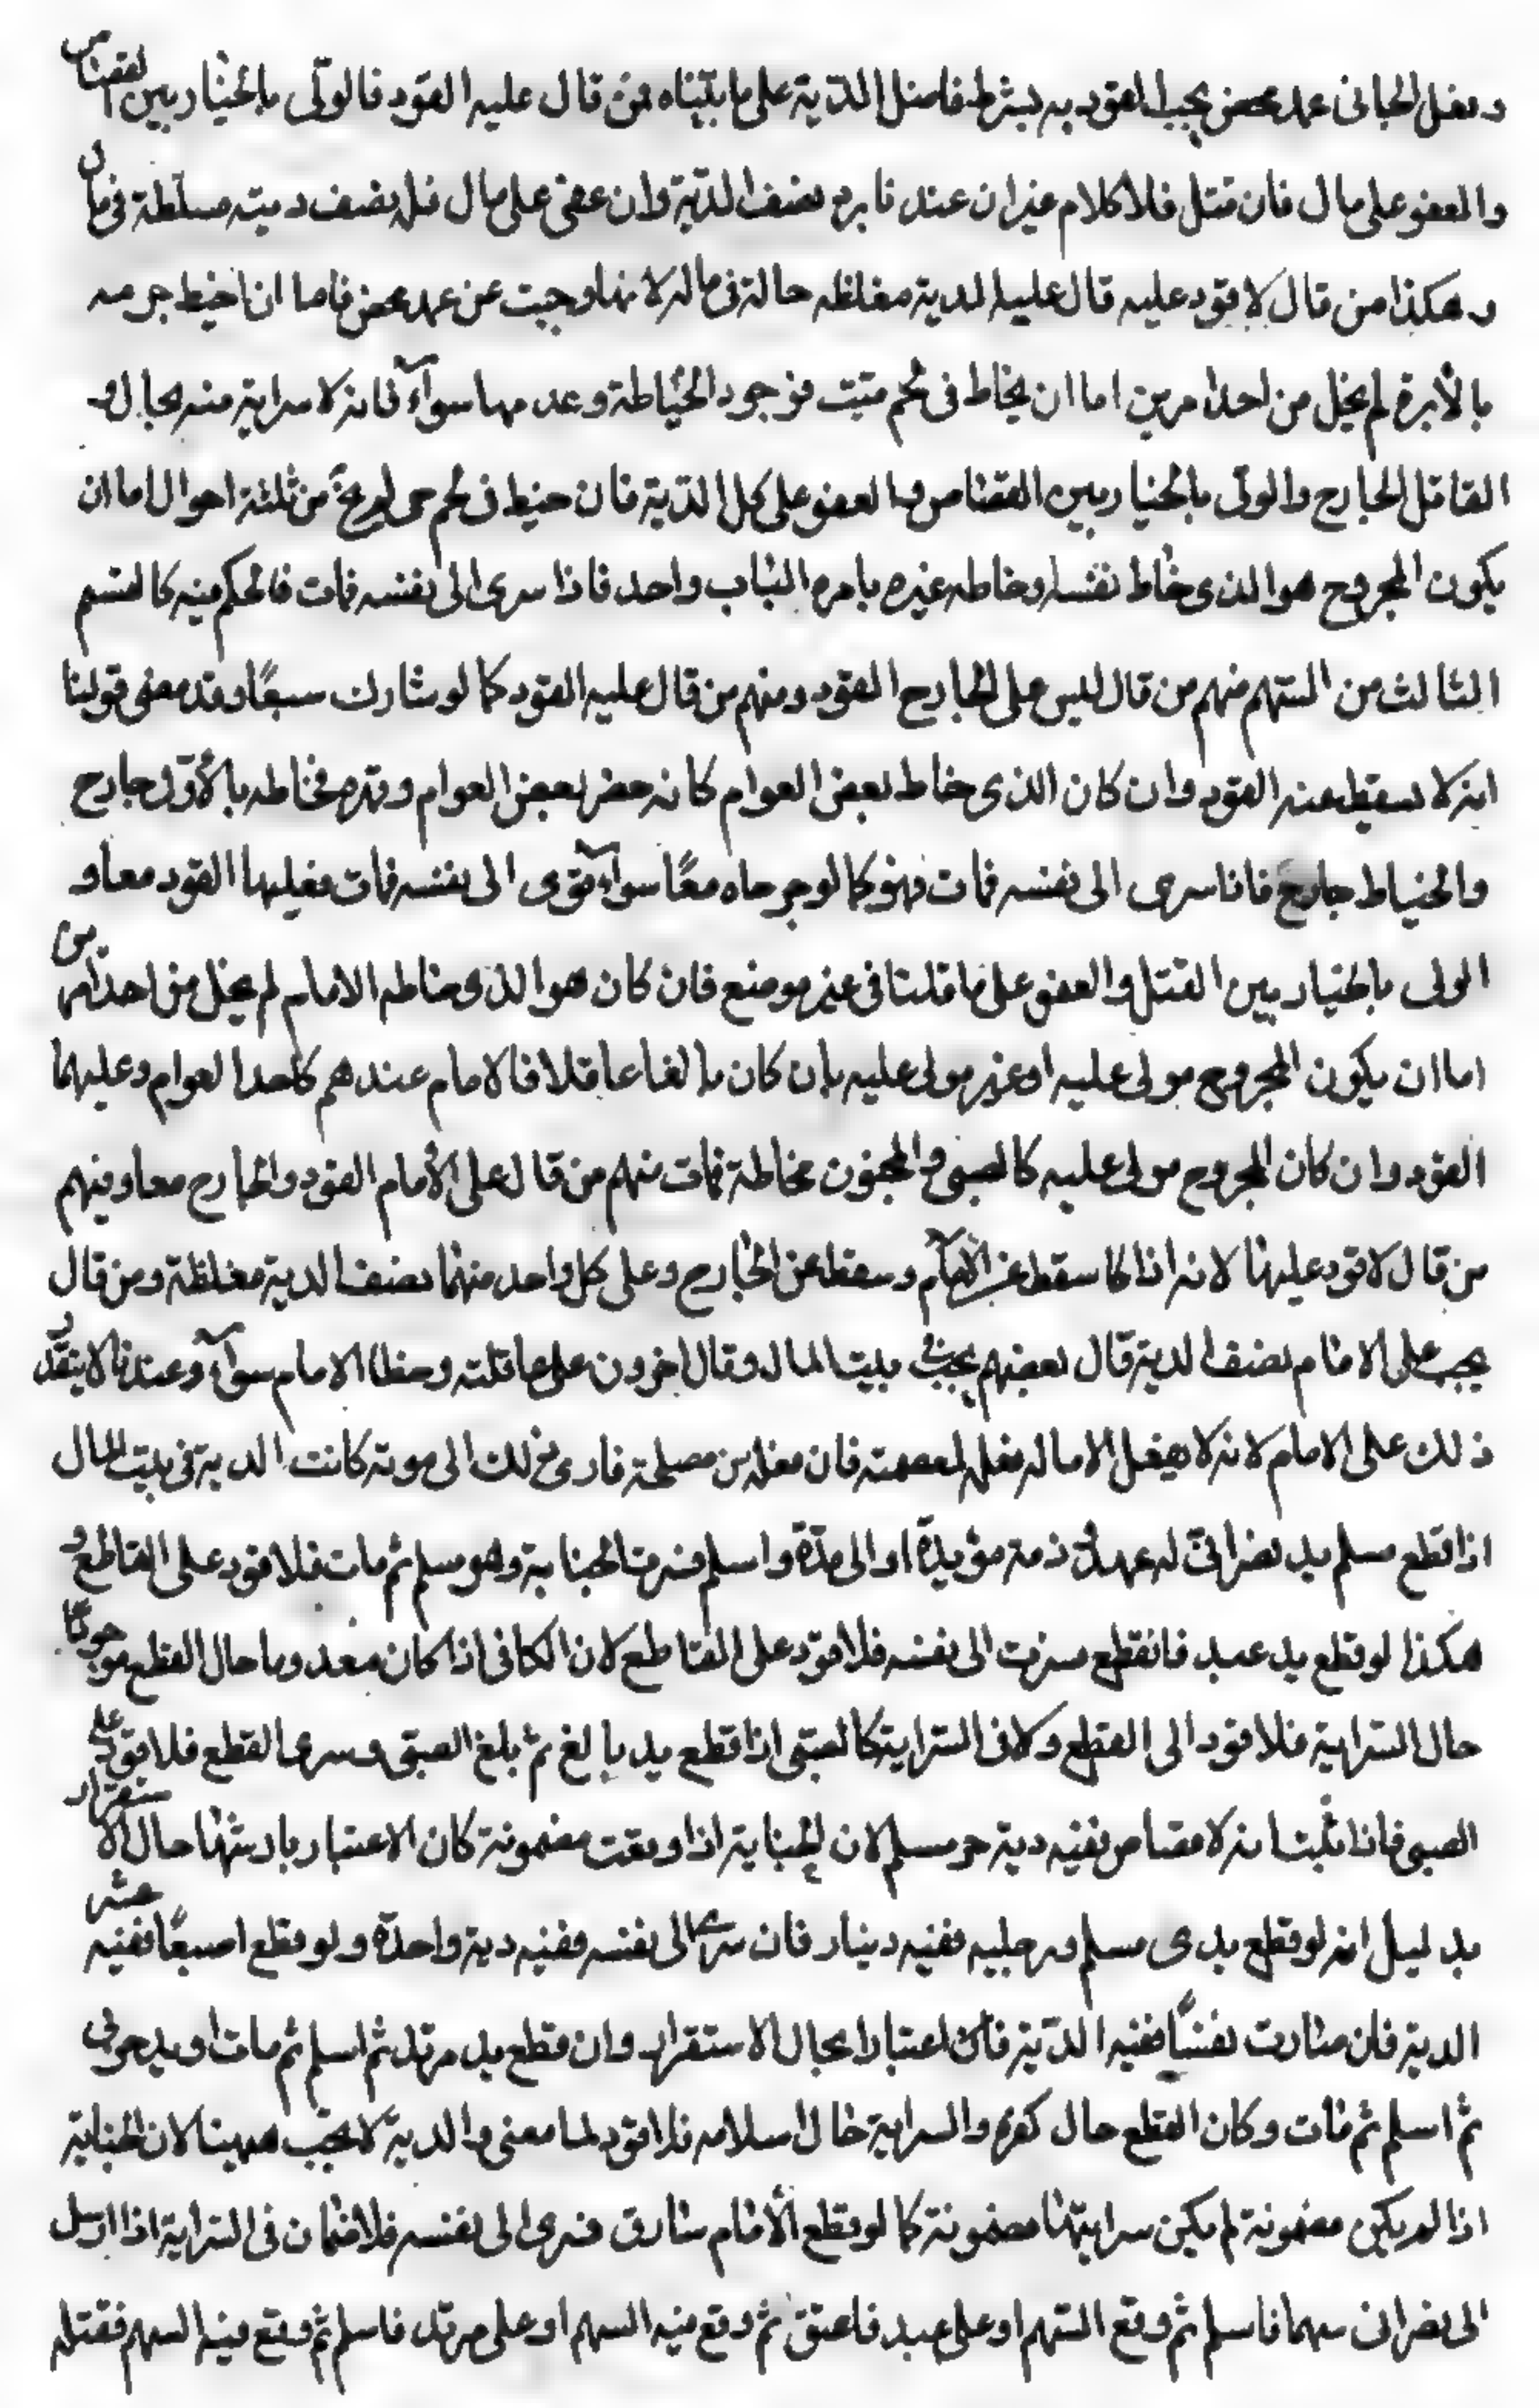 وفعل الجانى عمد محض يجب القود به بشرط فاضل الدّية على ما بيّناه فمن قال عليه القود فالولّى بالخيار بين القصاص
والعفو على مال فان قتل فلا كلام غير ان عندنا يرد نصف الدّية وان عفى على مال فله نصف ديته مغلظة فى مال
وهكذا من قال لا قود عليه قال عليه الدية مغلظه حالة فى ماله لانها وجبت عن عمد محض فاما ان اخيط جرحه
بالأبرة لم يخل من احد امرين اما ان يخاط فى لحم ميّت فوجود الخياطة وعدمها سوآء فانه لا سراية منه بحال و
القاتل الجارح والولّى بالخيار بين القصاص والعفو على كل الدّية فان خيط فى لحم حى لم يخل من ثلثة احوال اما ان
يكون المجروح هو الذى خاط نفسه او خاطه غيره بامره الباب واحد فاذا سرى الى نفسه فمات فالحكم فيه كالقسم
الثالث من السّهم منهم من قال ليس على الجارح القود ومنهم من قال عليه القود كما لو شارك سبعًا وقد مضى قولنا
انه لا يسقط عنه القود وان كان الذى خاط بعض العوام كانه حضر بعض العوام وقدم فخاطه بالأوّل جارح
والخياط جارح فاذا سرى الى نفسه فمات فهو كما لو جرحاه معًا سوآء فوى الى نفسه فمات فعليهما القود معا و
الولى بالخيار بين القتل والعفو على ما قلنا فى غير موضع فان كان هو الذى خاطه الامام لم يخل من احد امرين
اما ان يكون المجروح مولى عليه او غير مولى عليه بان كان بالغا عاقلا فالامام عندهم كاحد العوام وعليهما
القود وان كان المجروح مولى عليه كالصبى والمجنون فخاطه فمات منهم من قال على الأمام القود والجارح معا وفيهم
من قال لا قود عليهما لانه اذا كا سقط عن الامآم وسقط عن الجارح وعلى كل واحد منهما نصف الدية مغلظة ومن قال
يجب على الامام نصف الدية قال بعضهم يجب فى بيت المال وقال اخرون على عاقلته وخطا الامام سوآء وعندنا لا يتقدّر
ذلك على الامام لانه لا يفعل الا ماله فعله لعصمته فان فعله من مصلحة فادى ذلك الى موته كانت الدية فى بيت المال
اذا قطع مسلم يد نصرانّى له عهد ذمة مؤبدّة او الى مدّة واسلم فسرت الجناية وهو مسلم ثم مات فلا قود على القاطع و
هكذا لو قطع يد عبد فانقطع سرت الى نفسه فلا قود على القاطع لان الكافى اذا كان معدوما حال القطع موجودًا
حال السّراية فلا قود الى القطع ولا فى السّراية كالصبّى اذا قطع يد بالغ ثم بلغ الصبّى وسرى القطع فلا قود على
الصبى فاذا ثبت انه لا قصاص ففيه دية حر مسلم لان الجناية اذا وقعت مضمونة كان الاعتبار بارشها حال الاستقرار
بدليل انه لو قطع يدى مسلم ورجليه ففيه دينار فان سرى الى نفسه ففيه دية واحدة ولو قطع اصبعًا ففيه عشر
الدية فان صارت نفسًا ففيه الدّية فان اعتبارا بحال الاستقرار وان قطع يد مرتد ثم اسلم ثم مات او يد حربى
ثم اسلم ثم مات وكان القطع حال كفره والسراية حال اسلامه فلا قود لما مضى والدية لا تجب ههينا لان الجناية
اذا لم يكن مضمونة لم يكن سرايتها مضمونة كما لو قطع الأمام سارق فسرى الى نفسه فلا ضمان فى السّراية اذا ارسل
الى نصرانى سهما فاسلم ثم وقع السّهم او على عبد فاعتق ثم وقع فيه السهم او على مرتد فاسلم ثم وقع فيه السهم فقتله